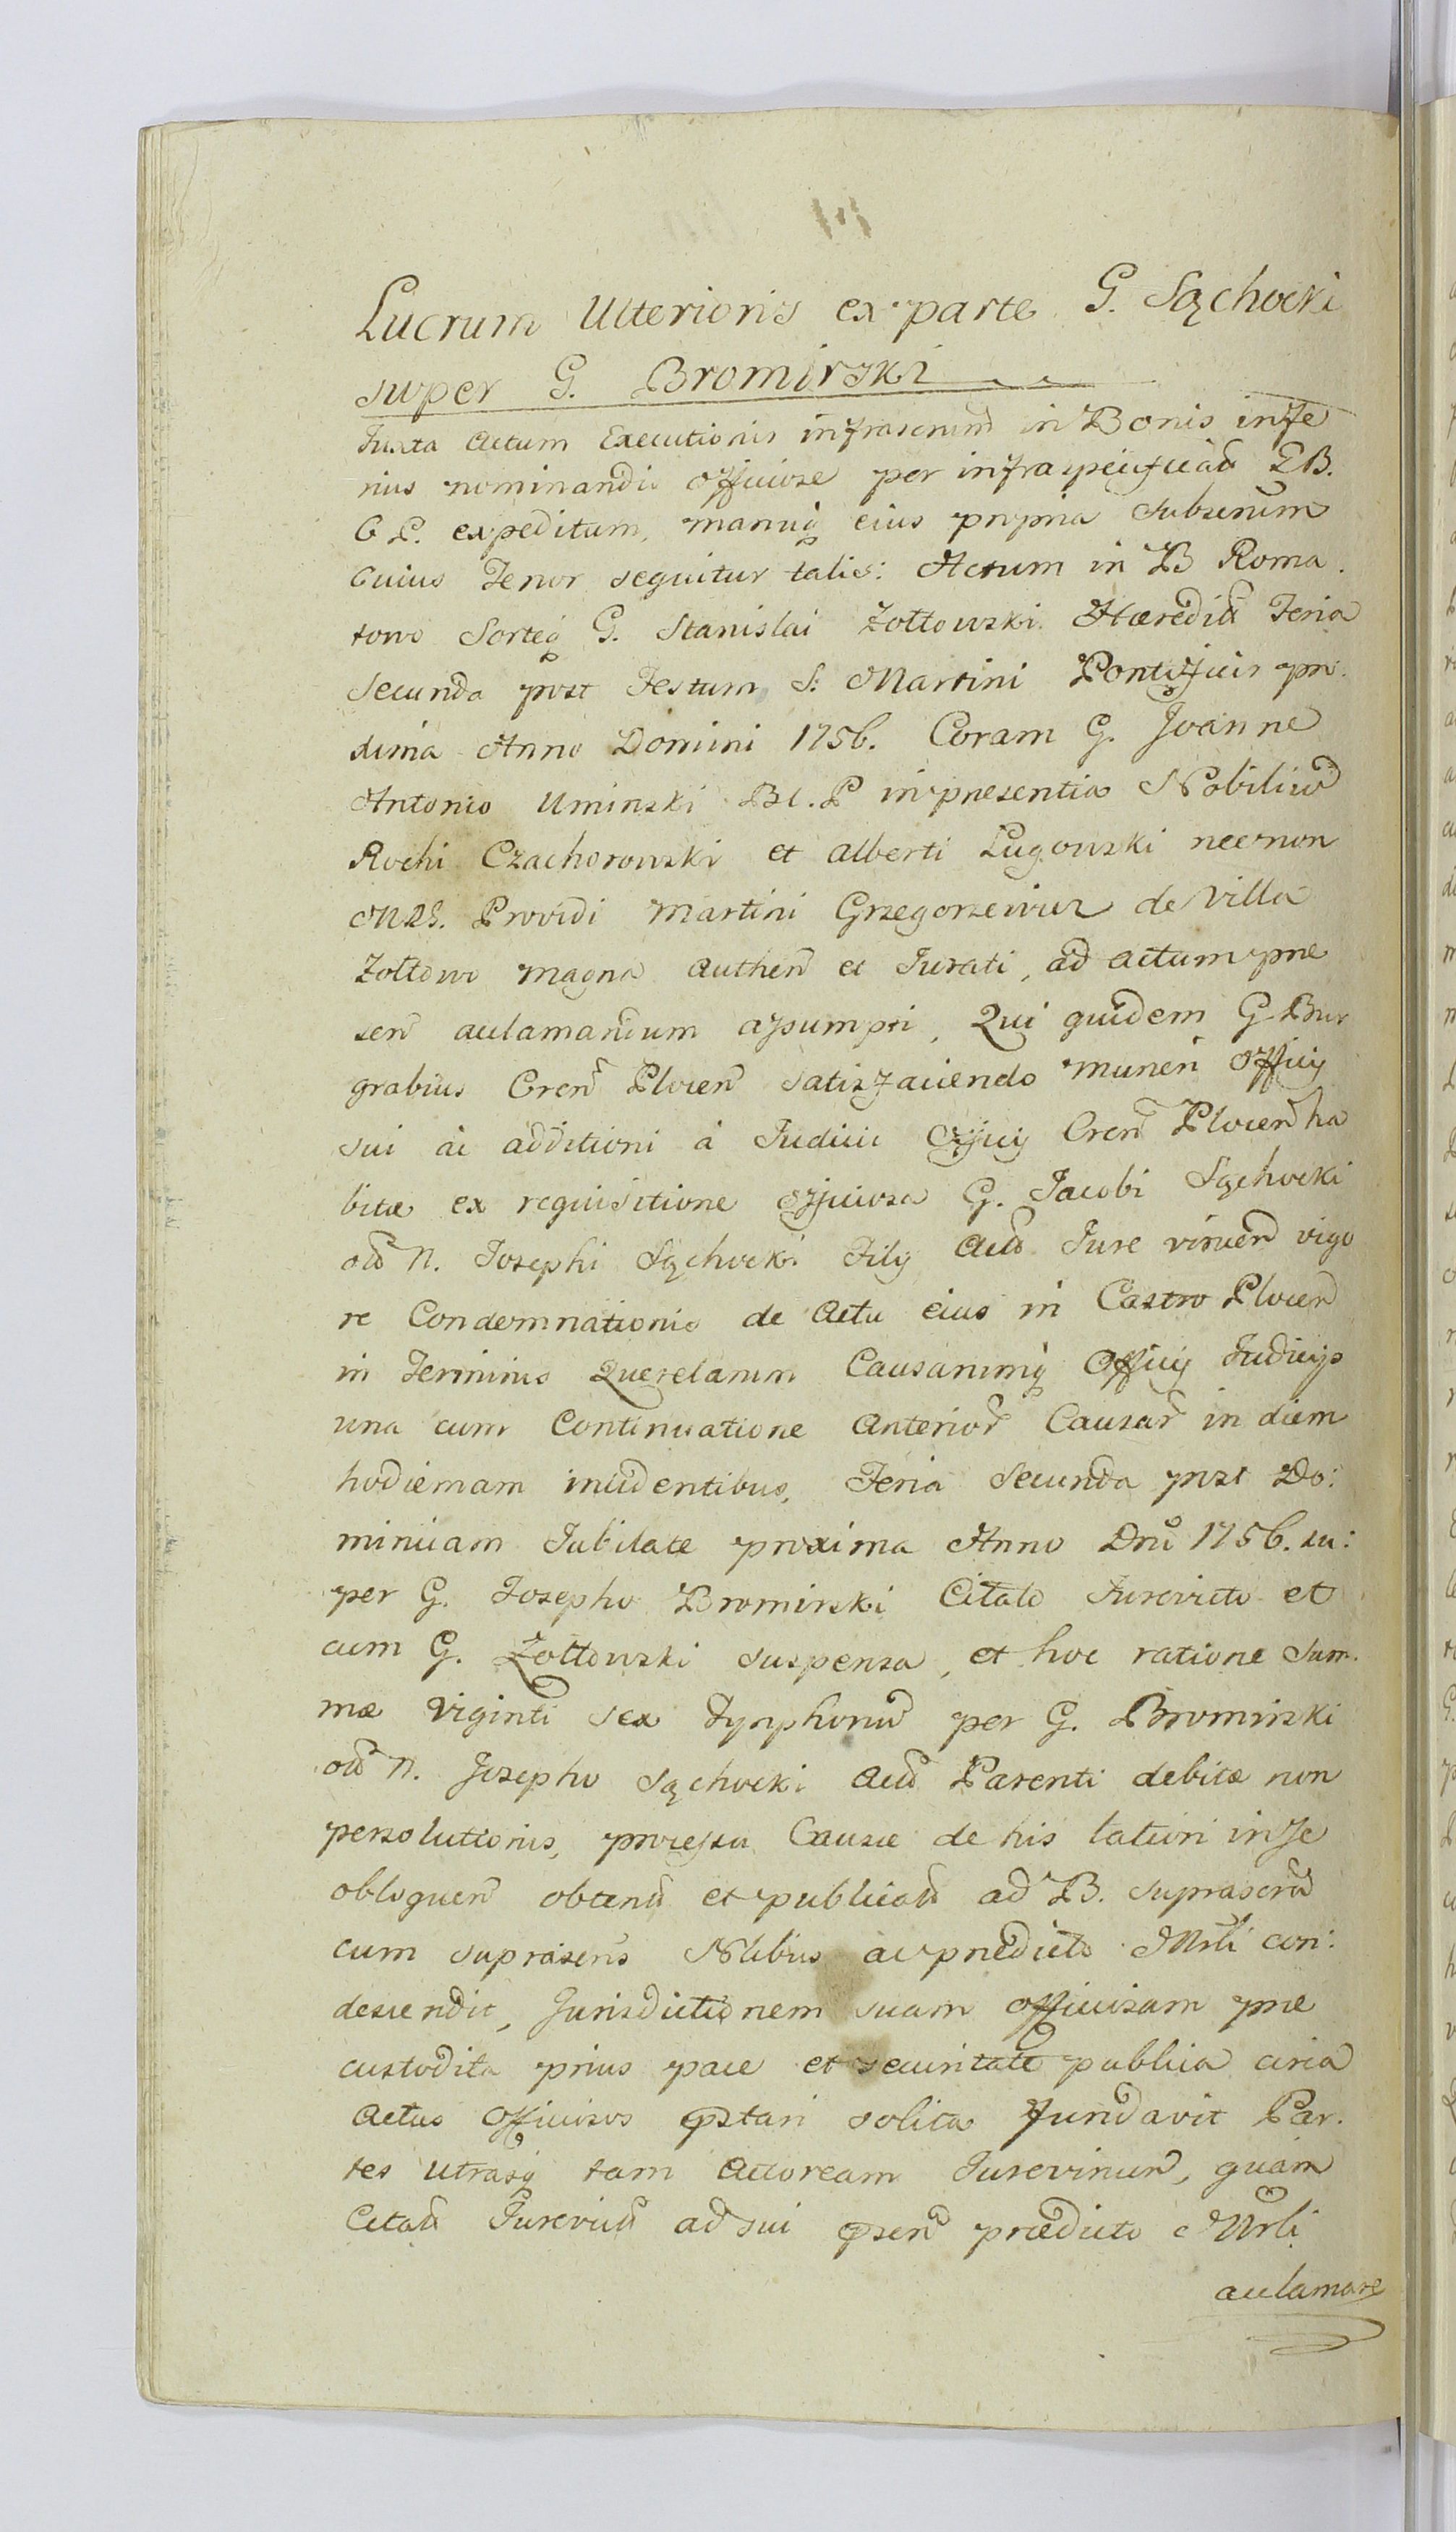 Lucrum Ulterioris ex parte G. Sąchocki
super G. Bromirski
Juxta Actum Executionis infrascrium in Bonis infe
rius nominandis officiose per infraspecificatu EB.
C P. expeditum, manuq eius propria Subscrium
Cuius Tenor sequitur talis: Actum in B Roma.
towo Sorteq G. Stanislai Zołtowski Hæreditu Feria
Secunda post Festum S: Martini Pontificis pro:
xima Anno Domini 1756. Coram G. Joanne
Antonio Uminski BC.P in presentia Nobiliu
Rochi Czachorowski et Alberti Lugowski necnon
MRS. Providi Martini Grzegorzewicz de Villa
Zołtowo Magna Authen et Jurati, ad actum pre
sen acclamandum assumpti, Qui quidem G Bur
grabius Cren Plocen satisfaciendo muneri Officij
sui ac additioni a Judicii Officij Cren Plocen ha
bitæ ex requisitione officiosa G. Jacobi Sąchocki
oli N. Josephi Sąchocki Filij Actu Jure vincen vigo
re Condemnationis de Actu eius in Castro Plocen
in Terminis Querelarum Causarumq Officij Judicijs
una cum Continuatione Anterior Causar in diem
hodiernam incidentibus, Feria Secunda post Do:
minicam Jubilate proxima Anno Dni 1756. su:
per G. Josepho Bromirski Citato Jurevicto et
cum G. Zołtowski suspensa, et hoc ratione Sum.
mæ Viginti sex Tynphoru per G. Bromirski
oli N. Josepho Sąchocki Actu Parenti debitæ non
persolutionis, processu Causæ de his latiori in se
obloquen obtentu et publicatu ad B. suprascrta
cum suprascris Nlibus ac predicto Mrli con:
descendit, Jurisdictionem suam officiosam præ
custodita prius pace et securitate publica circa
Actus Officiosos pstari solita fundavit Par.
tes utrasq tam Actoream Jurevincen, quam
Citatu Jurevictu ad sui psen prædicto Mrli
acclamare